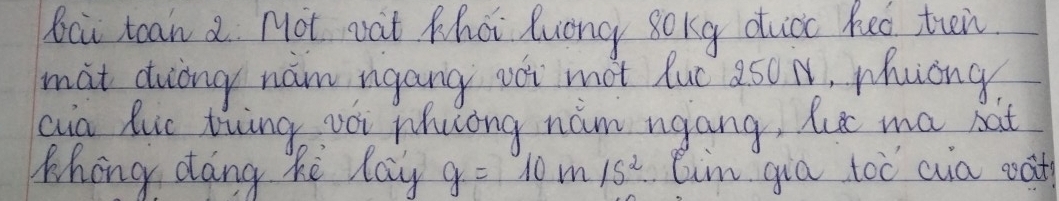 bài toán 2. Một vật khối lượng 80kg được kéo trên
mặt đường nằm ngang với một lực 250 N, phương
của lực trùng với phương nằm ngang, lực ma sát
không đáng kể lấy g = 10 m/s². tìm gia tốc của vật!